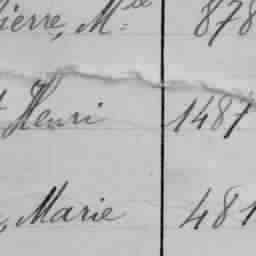 ierre, Mse 878
Henri 1487
, Marie 481